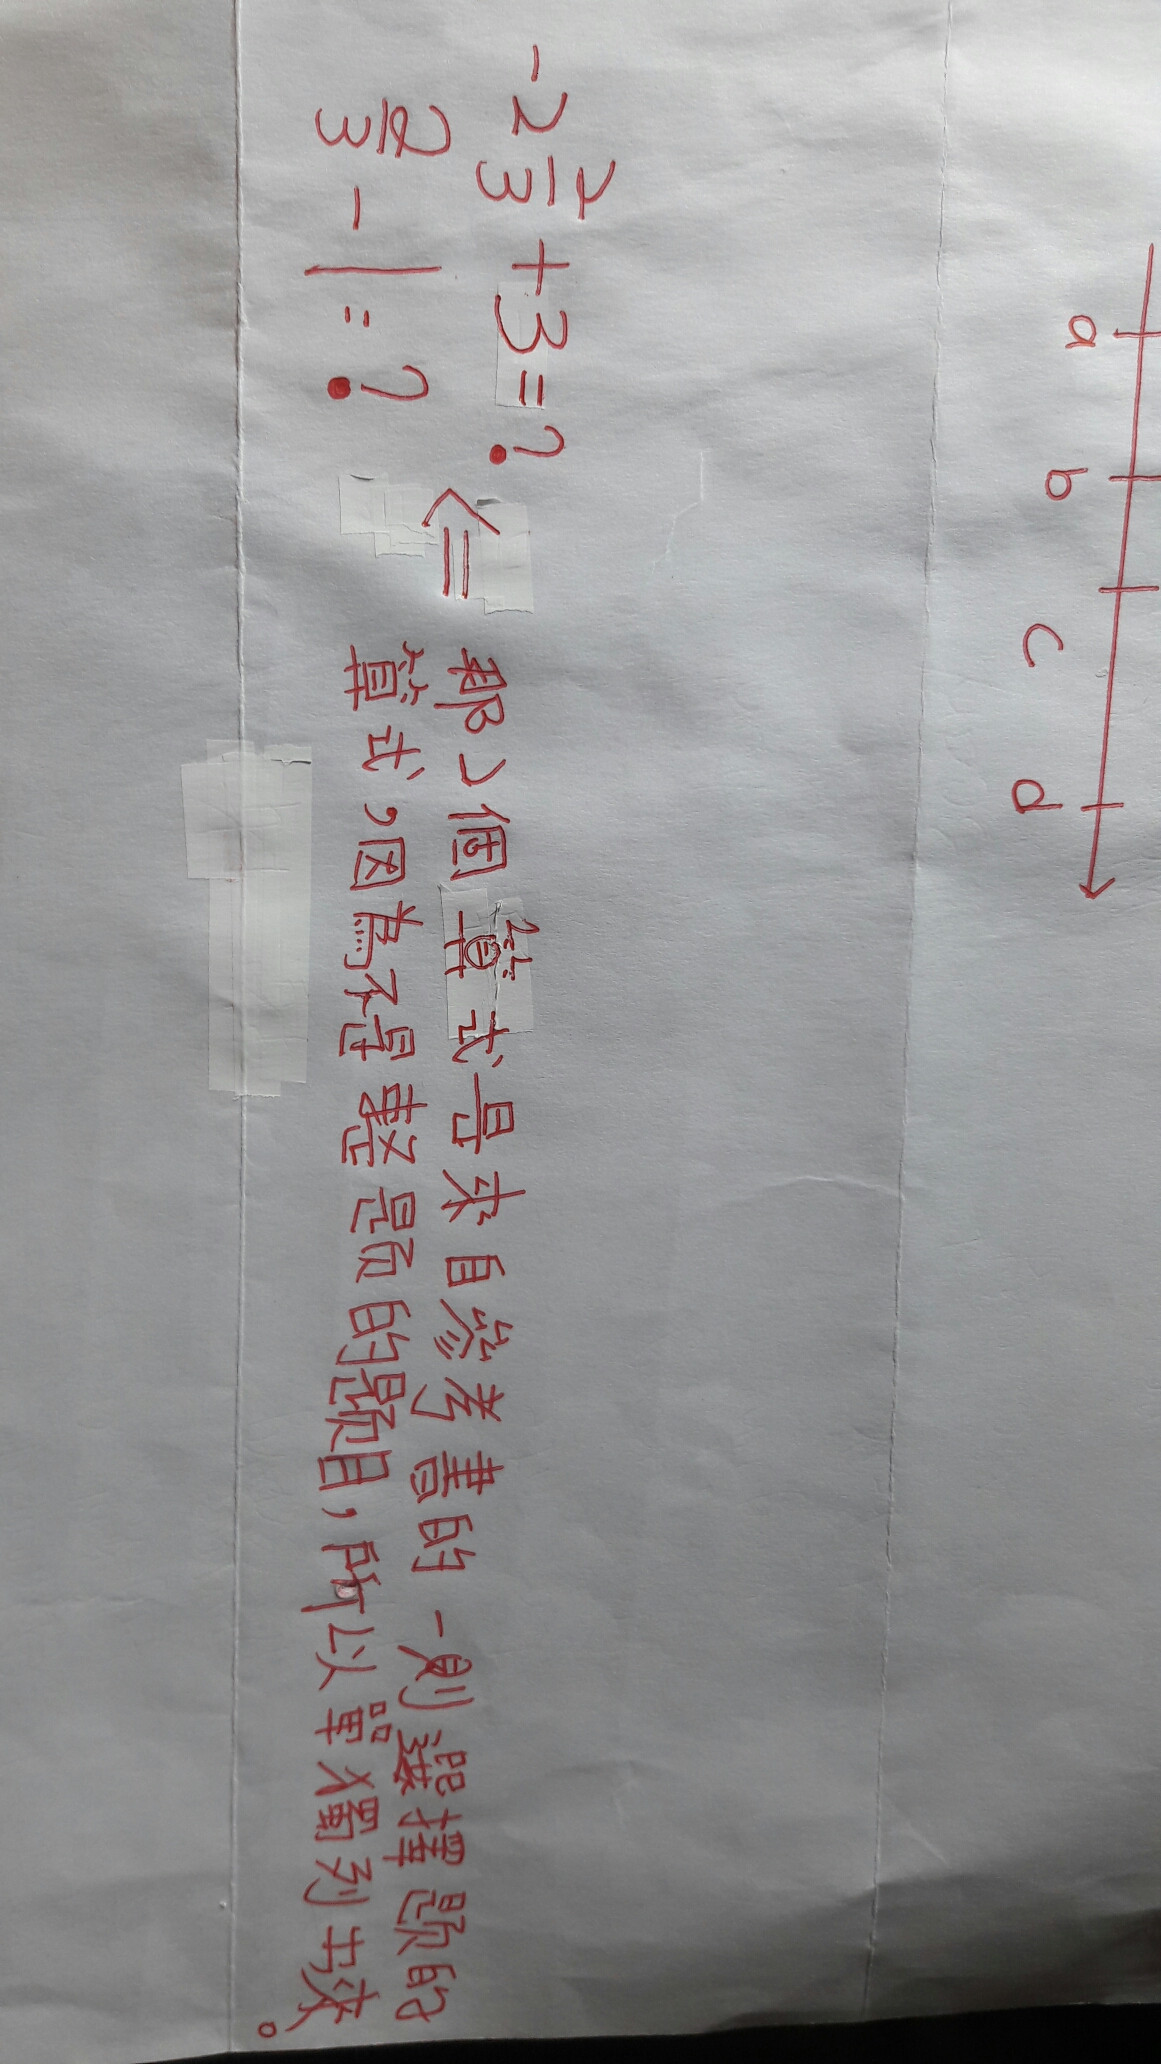 a b c d
-2 2/3 + 3 = ?
2/3 - 1 = ?
⇐
那2個算式是來自參考書的一則選擇題的
算式,因為不是整題的題目,所以單獨列出來。